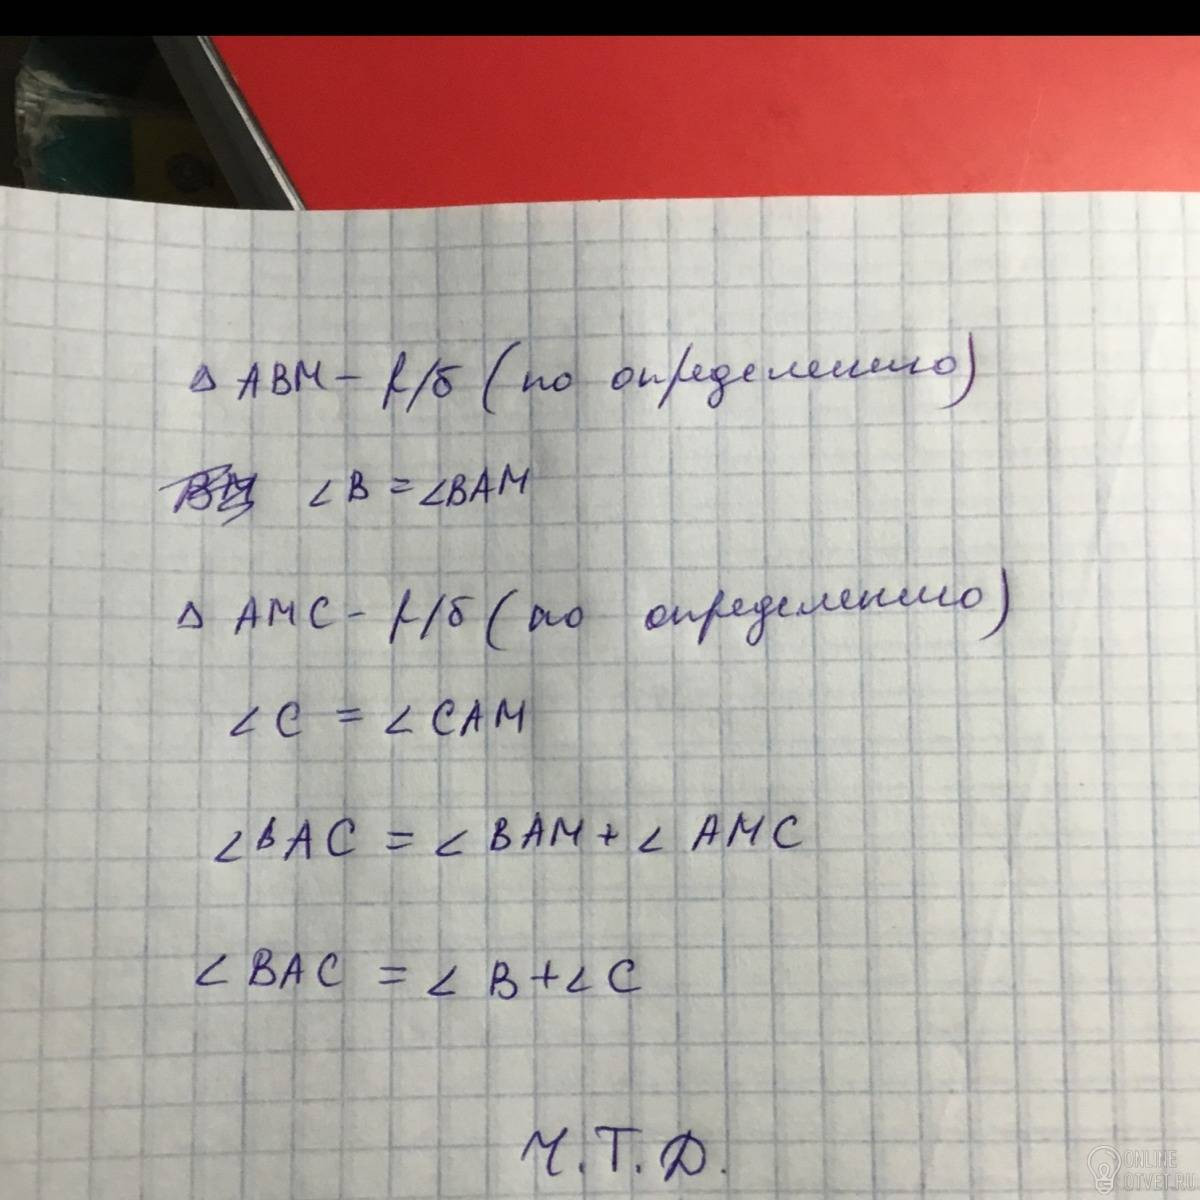 Δ ABM - р/б (по определению)
∠B = ∠BAM
Δ AMC - р/б (по определению)
∠C = ∠CAM
∠BAC = ∠BAM + ∠AMC
∠BAC = ∠B + ∠C
Ч.Т.Д.
ONLINE
OTVET.RU